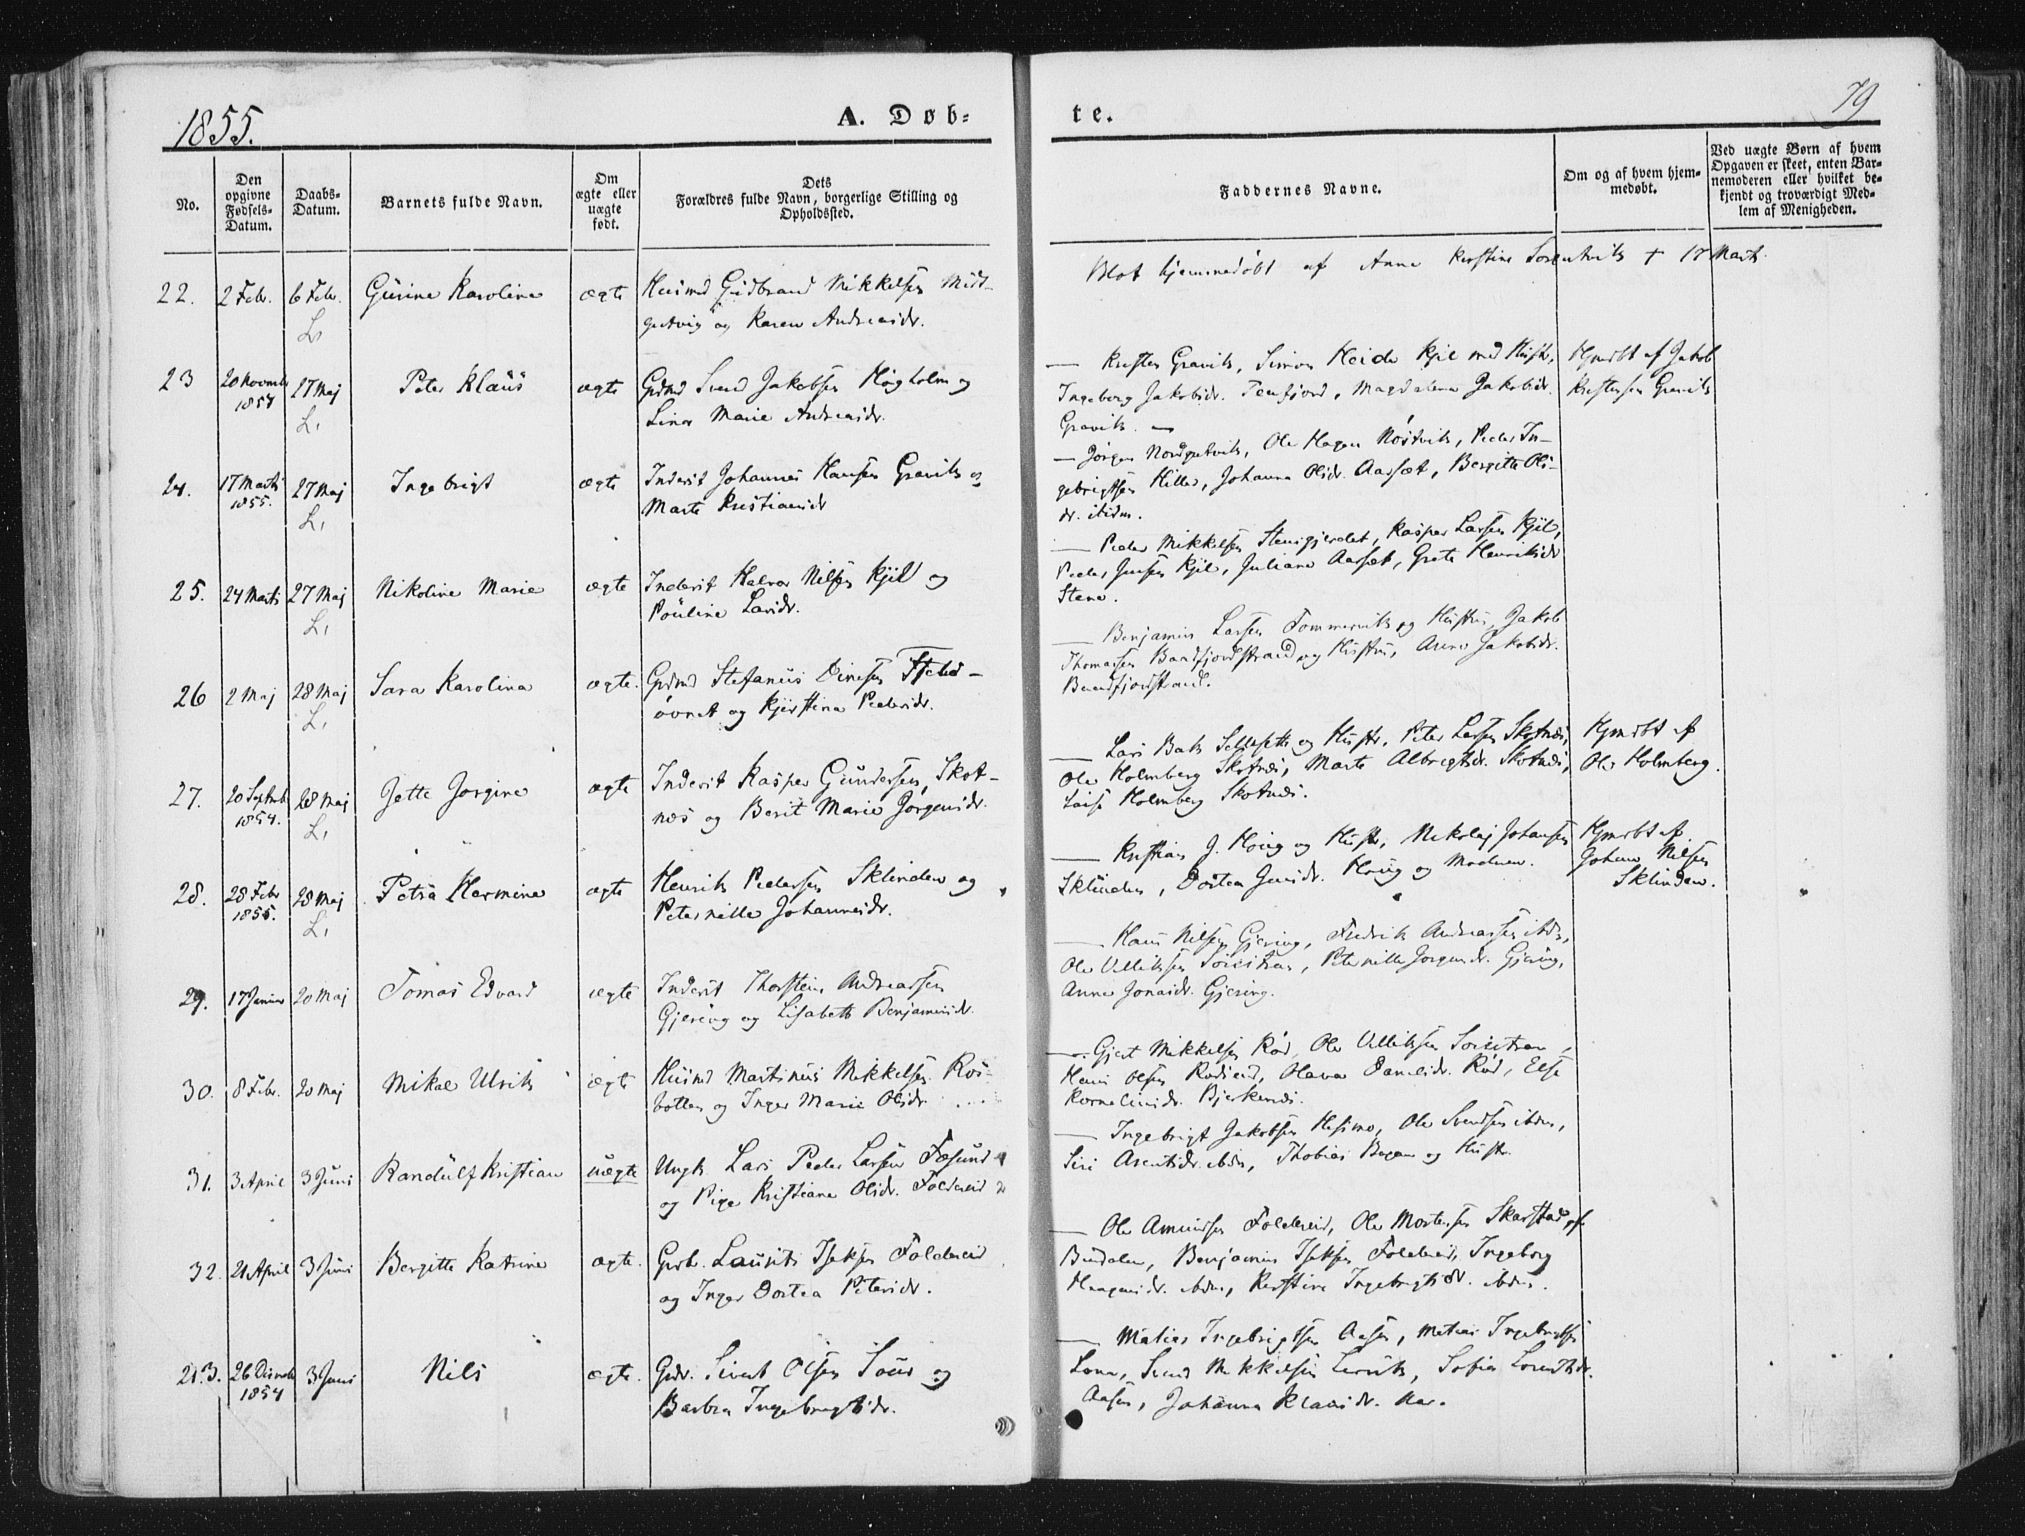 1855.
A. Døb-
te.
79
No.
Den opgivne Fødsels-Datum.
Daabs-Datum.
Barnets fulde Navn.
Om ægte eller uægte født.
Dets Forældres fulde Navn, borgerlige Stilling og Opholdssted.
Faddernes Navne.
Om og af hvem hjemmedøbt.
Ved uægte Børn af hvem Opgaven er skeet, enten Barnemoderen eller hvilket bekjendt og troværdigt Medlem af Menigheden.
22. 2 Febr. 6 Febr. Gurine Karoline ægte Husmd Gudbrand Mikkelsen
og Karen Andreasdr.
Blot hjemmedøbt af Anne Kerstine † 17 Marts.
23 20 Novemb 1854 27 Maj Peter Klaus ægte Grdmd Svend Jakobsen Høgholm og
Marie Andreasdr.
— Kristen Gravik, Simon Heide Kjil med Hustr,
Ingeborg Jakobsdr. Tenfjord, Magdalena Jakobsdr.
Gravik. —
Hjmdbt af Jakob
Kristensen Gravik
24. 17 Marts 1855. 27 Maj Ingebrigt ægte Inderst Johannes Hansen Gravik og
Marte Kristiansdr
— Jørgen Ole Hagen Peder In-
gebrigtsen Hiller, Johanna Olsdr. Aarsæt, Bergitte Ols-
dr. ibidm.
25. 24 Marts 27 Maj Nikoline Marie ægte Inderst Halvor Nilsen Kjil og
Pouline Larsdr.
— Peder Mikkelsen Kasper Larsen Kjil,
Peder Jensen Kjil, Juliana Aarsæt, Grete Henriksdr
Stene.
26 2 Maj 28 Maj Sara Karolina ægte. Grdmd Stefanus
og Kjerstina Pedersdr.
— Benjamin Larsen Tommervik og Hustru, Jakob
Thomassen og Hustru, Anne Jakobsdr.
27. 20 Septmb. 1854. 28 Maj Jette Jorgine ægte Inderst Kasper Gundersen, Skot-
næs og Berit Marie Jørgensdr.
— Lars og Hustr, Peter Larsen Skotnæs,
Ole Holmberg Skotnæs, Marte Albregtsdr. Skotnæs,
Holmberg Skotnæs.
Hjmdbt af
Ole Holmberg.
28. 28 Febr 1855. 28 Maj Petra Hermine ægte Henrik Pedersen Sklinden og
Peternille Johannesdr.
— Kristian J. Høug og Hustr, Nikolaj Johansen
Sklinden, Dortea Jensdr. Høug og Moderen.
Hjmdbt af
Johan Nilsen
Sklinden.
29. 17 Januar 20 Maj Tomas Edvard ægte Inderst Thorstein Andreassen
Gjering og Lisabeth Benjaminsdr.
— Hans Nilsen Gjering, Fredrik Andreassen ibdm,
Ole Peternille Jørgensdr. Gjering,
Anne Jonasdr. Gjering.
30. 8 Febr. 20 Maj Mikal Ulrik ægte Husmd Martinus Mikkelsen Ros-
botten og Inger Marie Olsdr.
— Gjert Mikkelsen Rød, Ole
Hans Olsen Olava Danielsdr. Rød, Else
Korneliusdr. Bjerkenæs.
31. 3 April 3 Juni Randulf Kristian uægte Ungk. Lars Peder Larsen
og Pige Kristiane Olsdr. Foldereid
— Ingebrigt Jakobsen Ole Svendsen ibdm,
Siri Arentsdr. ibdm, Thobias og Hustr.
32. 21 April 3 Juni Bergitte Katrine ægte. Grdb. Laurits Isaksen Foldereid
og Inger Dortea Petersdr.
— Ole Amundsen Foldereid, Ole Mortensen Skarstad,
Benjamin Isaksen Foldereid, Ingeborg
Haagensdr. ibdm, Kerstine Ingebrigtsdr. ibdm.
33. 26 Decmb 1854 3 Juni Nils ægte. Grdr. Sivert Olsen og
Barbra Ingebrigtsdr.
— Matias Ingebrigtsen Aasen, Matias Ingebrigtsen
Svend Mikkelsen Sofia Lorentsdr.
Aasen, Johanna Klausdr.